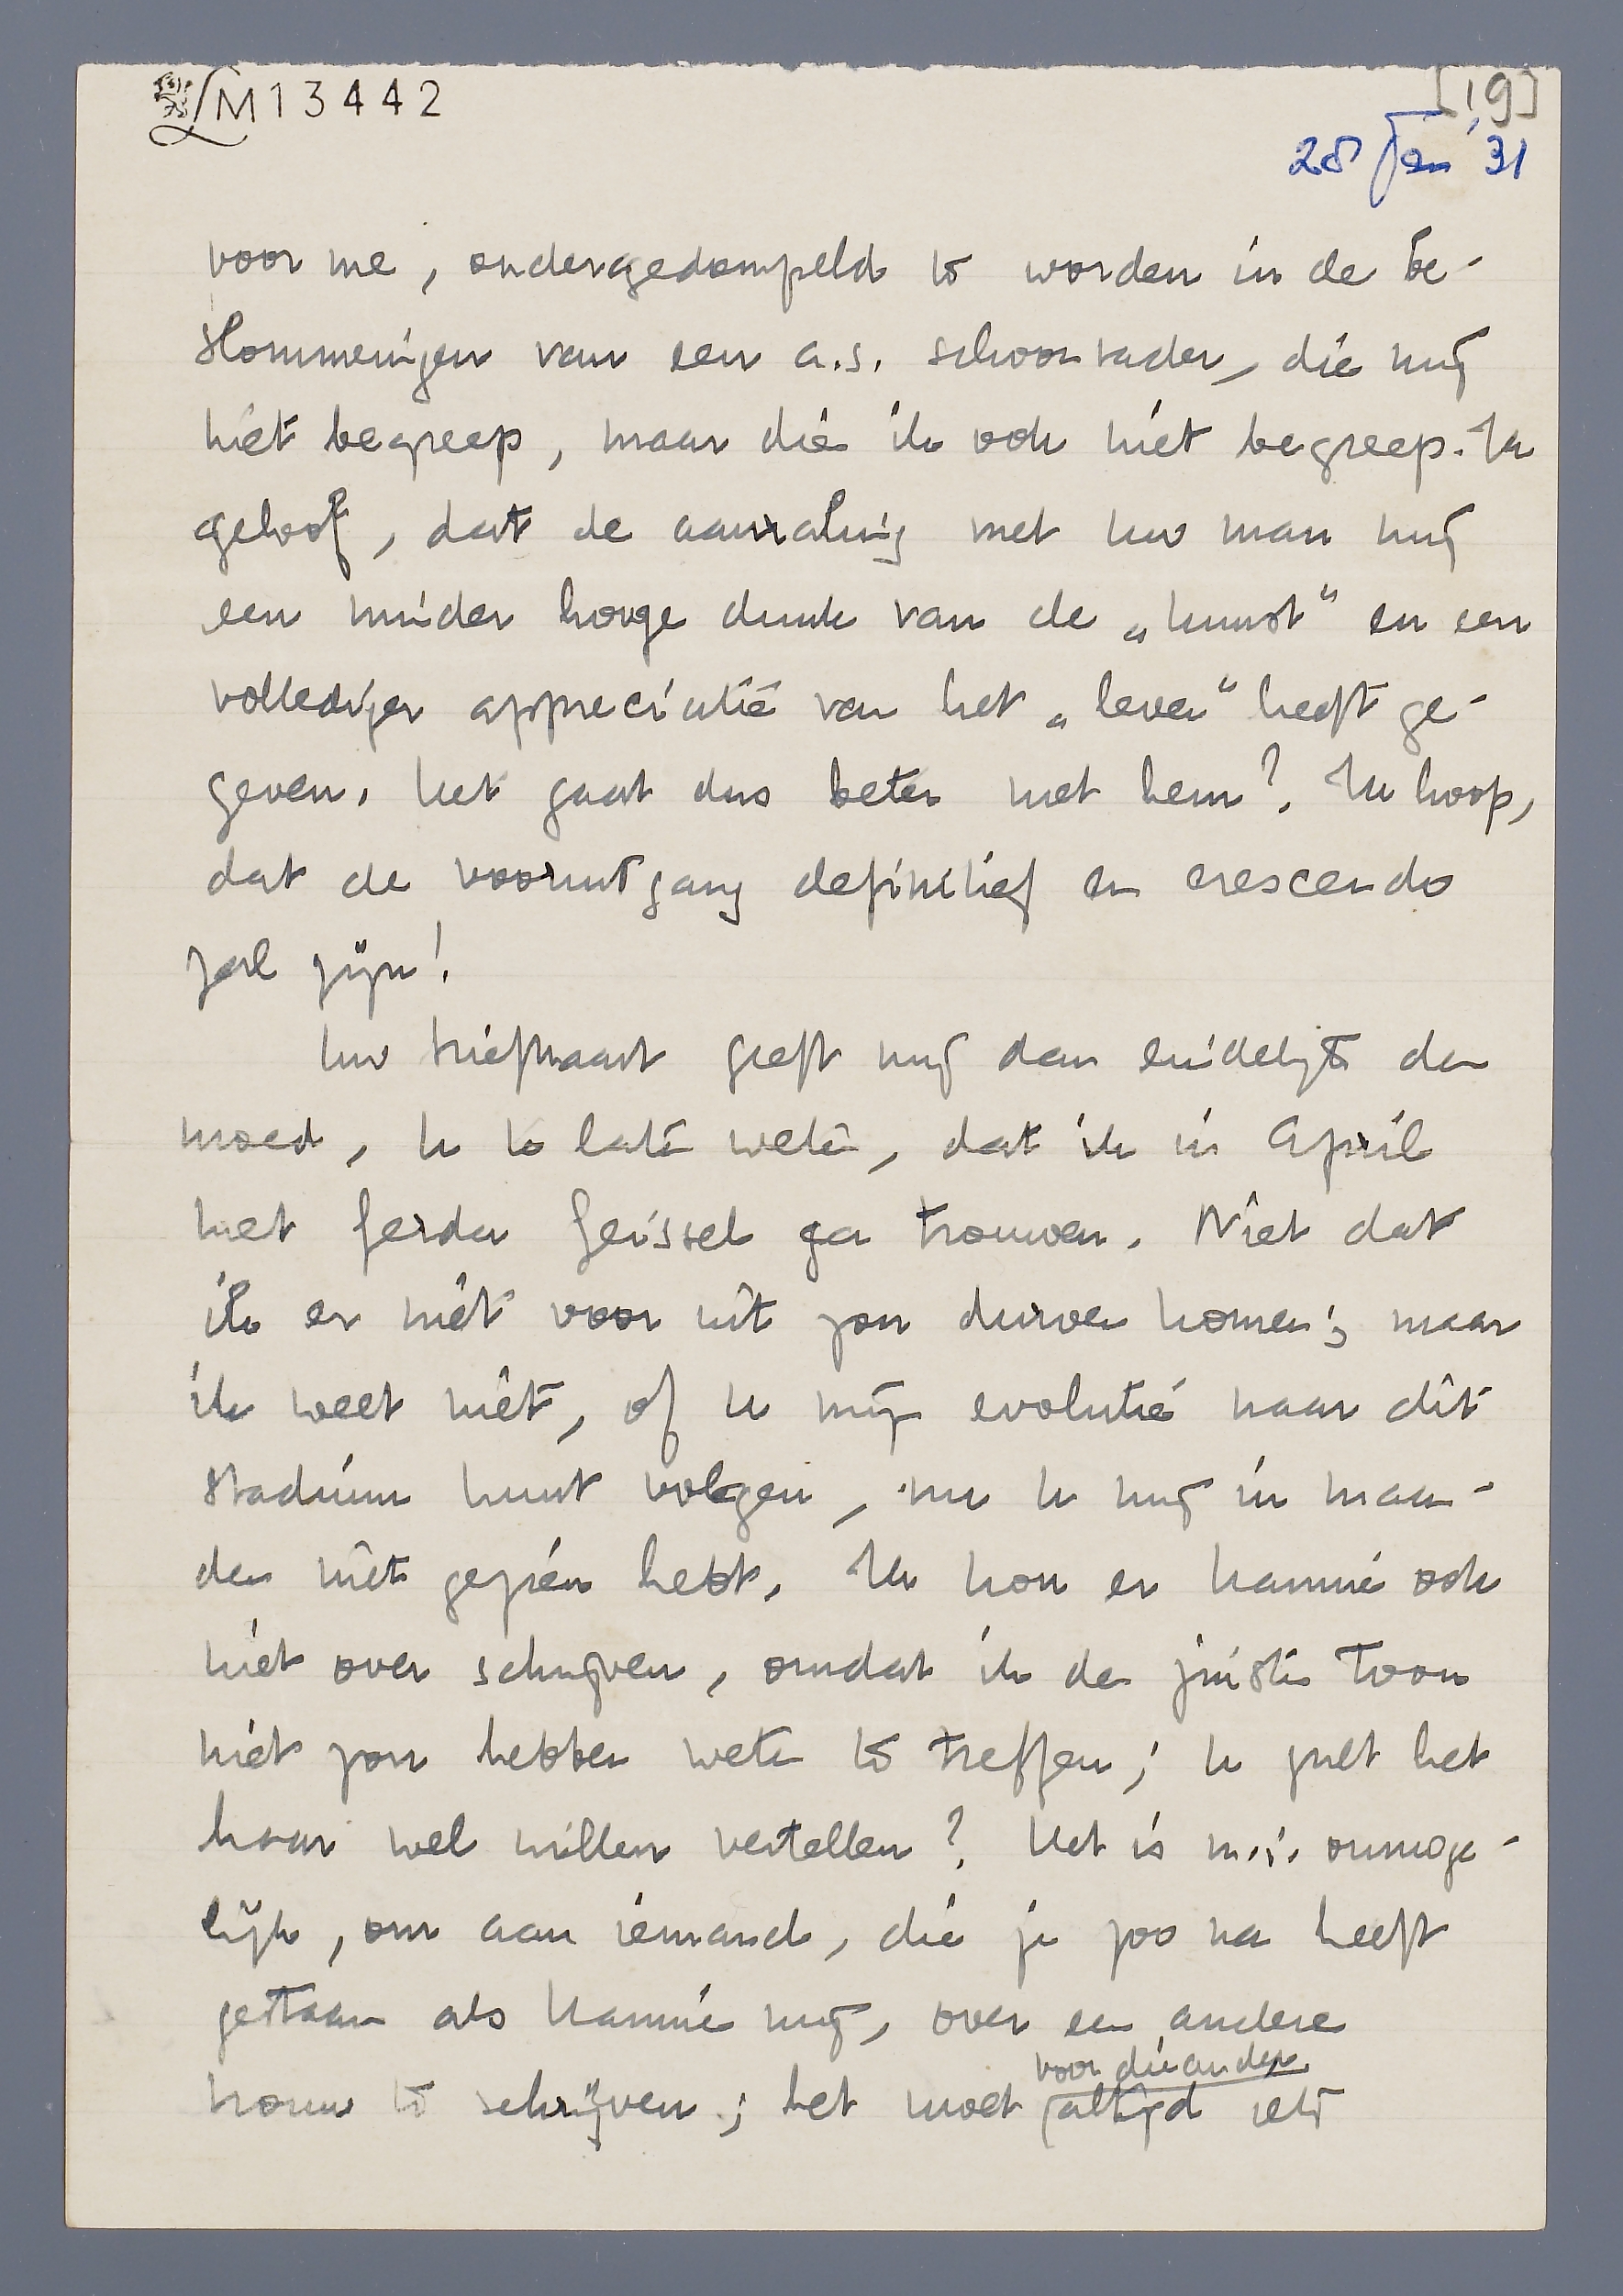 LM13442
[19]
28 Jan '31
voor me, ondergedompeld te worden in de be-
slommeringen van een a.s. schoonvader, die mij
niet begreep, maar die ik ook niet begreep. Ik
geloof, dat de aanraking met uw man mij
een minder hooge dunk van de „kunst" en een
vollediger appreciatie van het „leven" heeft ge-
geven. Het gaat dus beter met hem? Ik hoop,
dat de vooruitgang definitief en crescendo
zal zijn!
Uw briefkaart geeft mij dan eindelijk de
moed, u te laten weten, dat ik in April
met Gerda Geissel ga trouwen. Niet dat
ik er niet voor uit zou durven komen; maar
ik weet niet, of u mijn evolutie naar dit
stadium kunt volgen, nu u mij in maan-
den niet gezien hebt. Ik kon er Hannie ook
niet over schrijven, omdat ik de juiste toon
niet zou hebben weten te treffen; u zult het
haar wel willen vertellen? Het is m.i. onmoge-
lijk, om aan iemand, die je zoo na heeft
gestaan als Hannie mij, over een andere
vrouw te schrijven; het moet voor die ander altijd iets